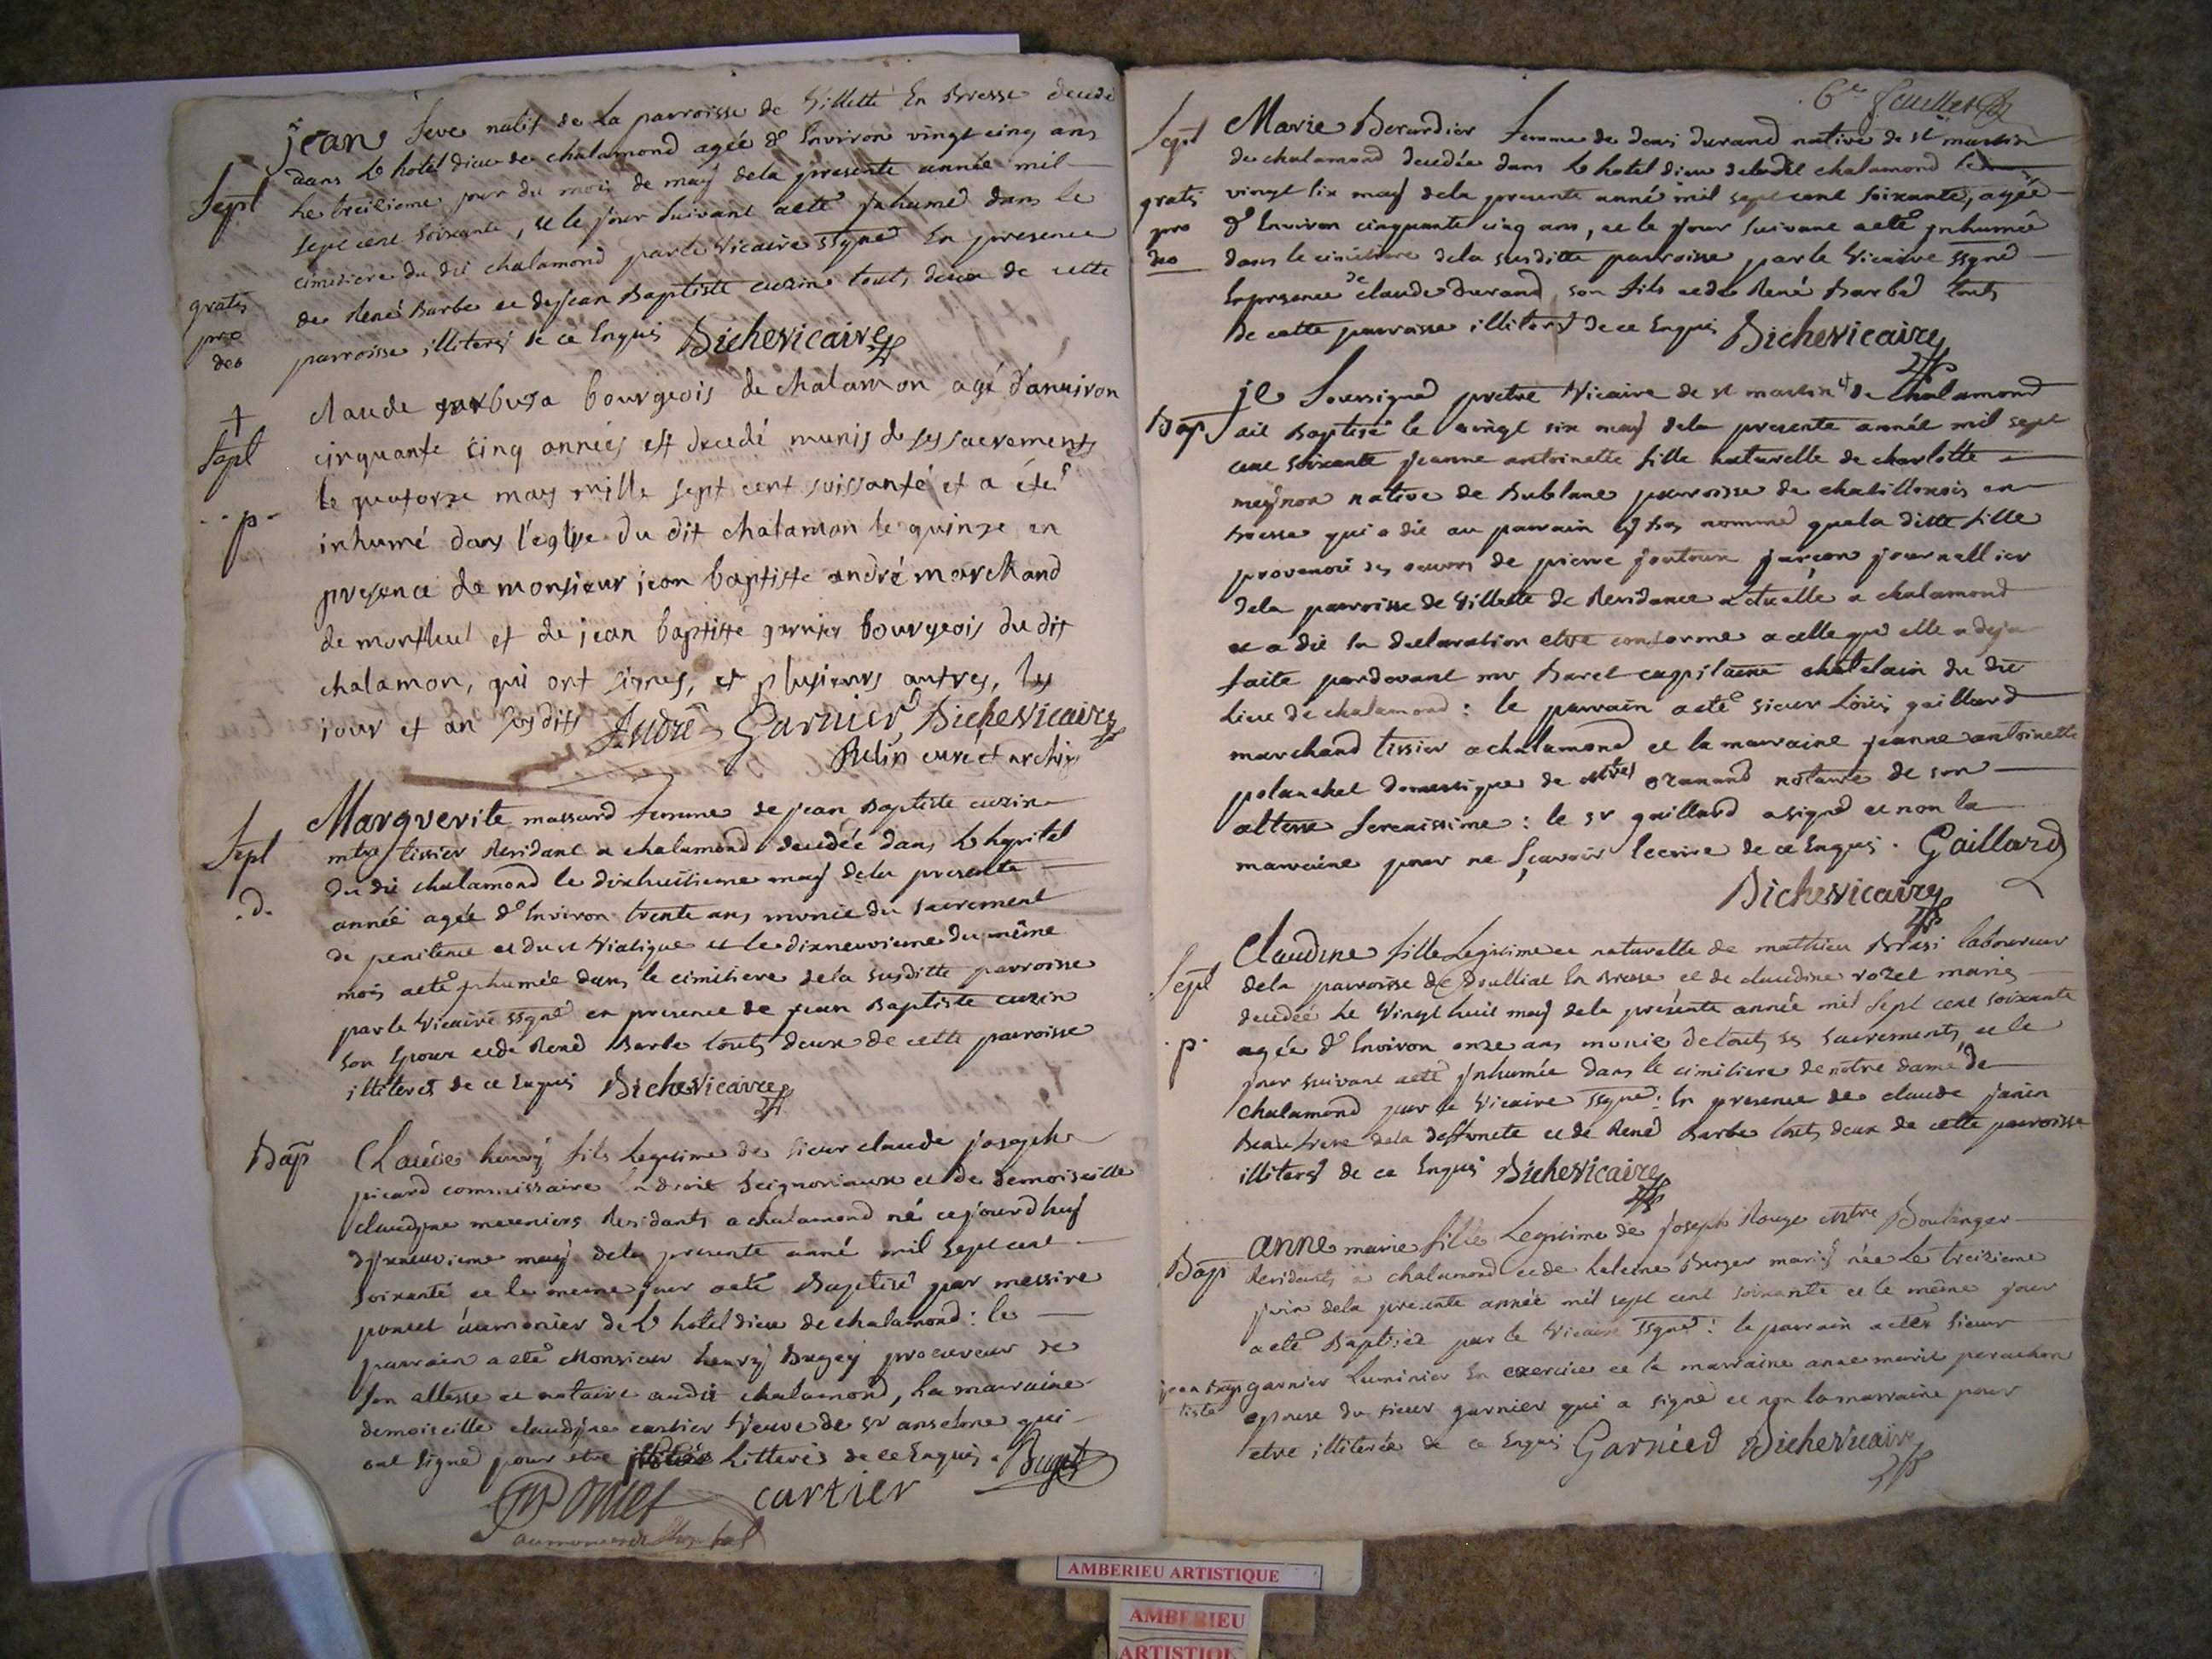 jean Seve natif de La parroisse de Villette En Bresse decedé
dans L'hotel dieu de chalamond agée d'Environ vingt cinq ans
Sept
Le treisieme jour du mois de may dela presente année mil
sept cent soixante, et le jour suivant aeté Inhumé dans le
cimetiere du dit chalamond par le Vicaire ssigné En presence
gratis
pro
deo
de René Barbe et de Jean Baptiste cuzin touts deux de cette
parroisse illiterés de ce Enquis Biche vicaire
†
Sept
p
claude bourgeois de chalamon agé d'anuiron
cinquante cinq années est decedé munis de ses sacrements
le quatorze may mille sept cent soissante et a été
inhumé dans l'eglise du dit chalamon le quinze en
presence de monsieur jean baptiste andré marchand
de montluel et de jean baptiste garnier bourgeois du dit
chalamon, qui ont signes, et plusieurs autres, les
jour et an susdits André Garnier Biche vicaire
curé et archip
Sept
.d.
Marguerite massard femme de jean Baptiste cuzin
mtre tissier Residant a chalamond decedée dans L'hopital
du dit chalamond le dixhuitieme may dela presente
année agée d'Environ trente ans munie du sacrement
de penitence et du st Viatique et le dixneuvieme du même
mois aeté Inhumée dans le cimitiere dela susditte parroisse
par le Vicaire ssigné en presence de jean Baptiste cuzin
son Epoux et de René Barbe touts deux de cette parroisse
illiterés de ce Enquis Biche Vicaire
Bap
Claude henry fils Legitime de sieur claude joseph
picard commissaire En droit Seignoriaux et de demoiseille
claudine meuniers Residants a chalamond né cejourd huy
dixneuvieme may dela presente anné mil sept cent
soixante et le meme jour aeté Baptisé par messire
poncet aumonier de L'hotel dieu de chalamond : le
parrain a eté Monsieur henry Bugey procureur de
son altesse et notaire audit chalamond, La marraine
demoiseille claudine cartier Veuve de sr anselme qui
ont signé pour être Litterés de ce Enquis. Bugey
Poncet cartier
aumonier de l'hopital
6e feuillet
Sept
Marie Berardier femme de denis durand native de st martin
de chalamond decedée dans L'hotel dieu dudit chalamond le
gratis
pro
deo
vingt six may dela presente anné mil sept cent soixante, agée
d'Environ cinquante cinq ans, et le jour suivant aeté Inhumée
dans le cimetiere dela susditte parroisse par le Vicaire ssigné
En presence de claude durand son fils et de René Barbe touts
de cette parroisse illiterés de ce Enquis Biche vicaire
Bap
je Soussigné pretre Vicaire de st martin de chalamond
ait Baptisé le vingt six may dela presente année mil sept
cent soixante jeanne antoinette fille naturelle de charlotte
meynon native de Bublane parroisse de chatillonais en
bresse qui a dit au parrain cy bas nommé quela ditte fille
provenoit des oeuvres de pierre joutoux garçon journallier
dela parroisse de Villette de Residance actuelle a chalamond
et a dit sa declaration etre conforme a celle que elle a deja
faite pardevant mr Baret capitaine chatelain du dit
Lieu de chalamond : le parrain aeté sieur Louis gaillard
marchand tissier a chalamond et la marraine jeanne antoinette
polanchet domestique de notaire de son
altesse serenissime : le sr gaillard a signé et non la
marraine pour ne sçavoir l'ecrire de ce Enquis. Gaillard
Biche vicaire
Sept
.p.
Claudine fille Legitime et naturelle de mathieu Brasi laboureur
dela parroisse de En Bresse et de claudine rozet mariés
decedée Le Vingt huit may dela presente année mil sept cent soixante
agée d'Environ onze ans munie de touts ses sacrements, et le
jour suivant aeté Inhumée dans le cimitiere de nôtre dame de
chalamond par le Vicaire ssigné : En presence de claude janin
Beaufrere dela deffuncte et de René Barbe touts deux de cette parroisse
illiterés de ce Enquis Biche Vicaire
Bap
anne marie fille Legitime de joseph Rouge mtre Boulanger
Residents a chalamond et de heleine Burger mariés née Le treizieme
juin dela presente année mil sept cent soixante et le même jour
aeté Baptisée par le Vicaire ssigné : le parrain aeté sieur
jean Baptiste garnier Luminier En exercice et la marraine anne marie perachon
epouse du sieur garnier qui a signé et non la marraine pour
etre illiterée de ce Enquis Garnier Biche Vicaire
AMBERIEU ARTISTIQUE
AMBERIEU
ARTISTIQUE